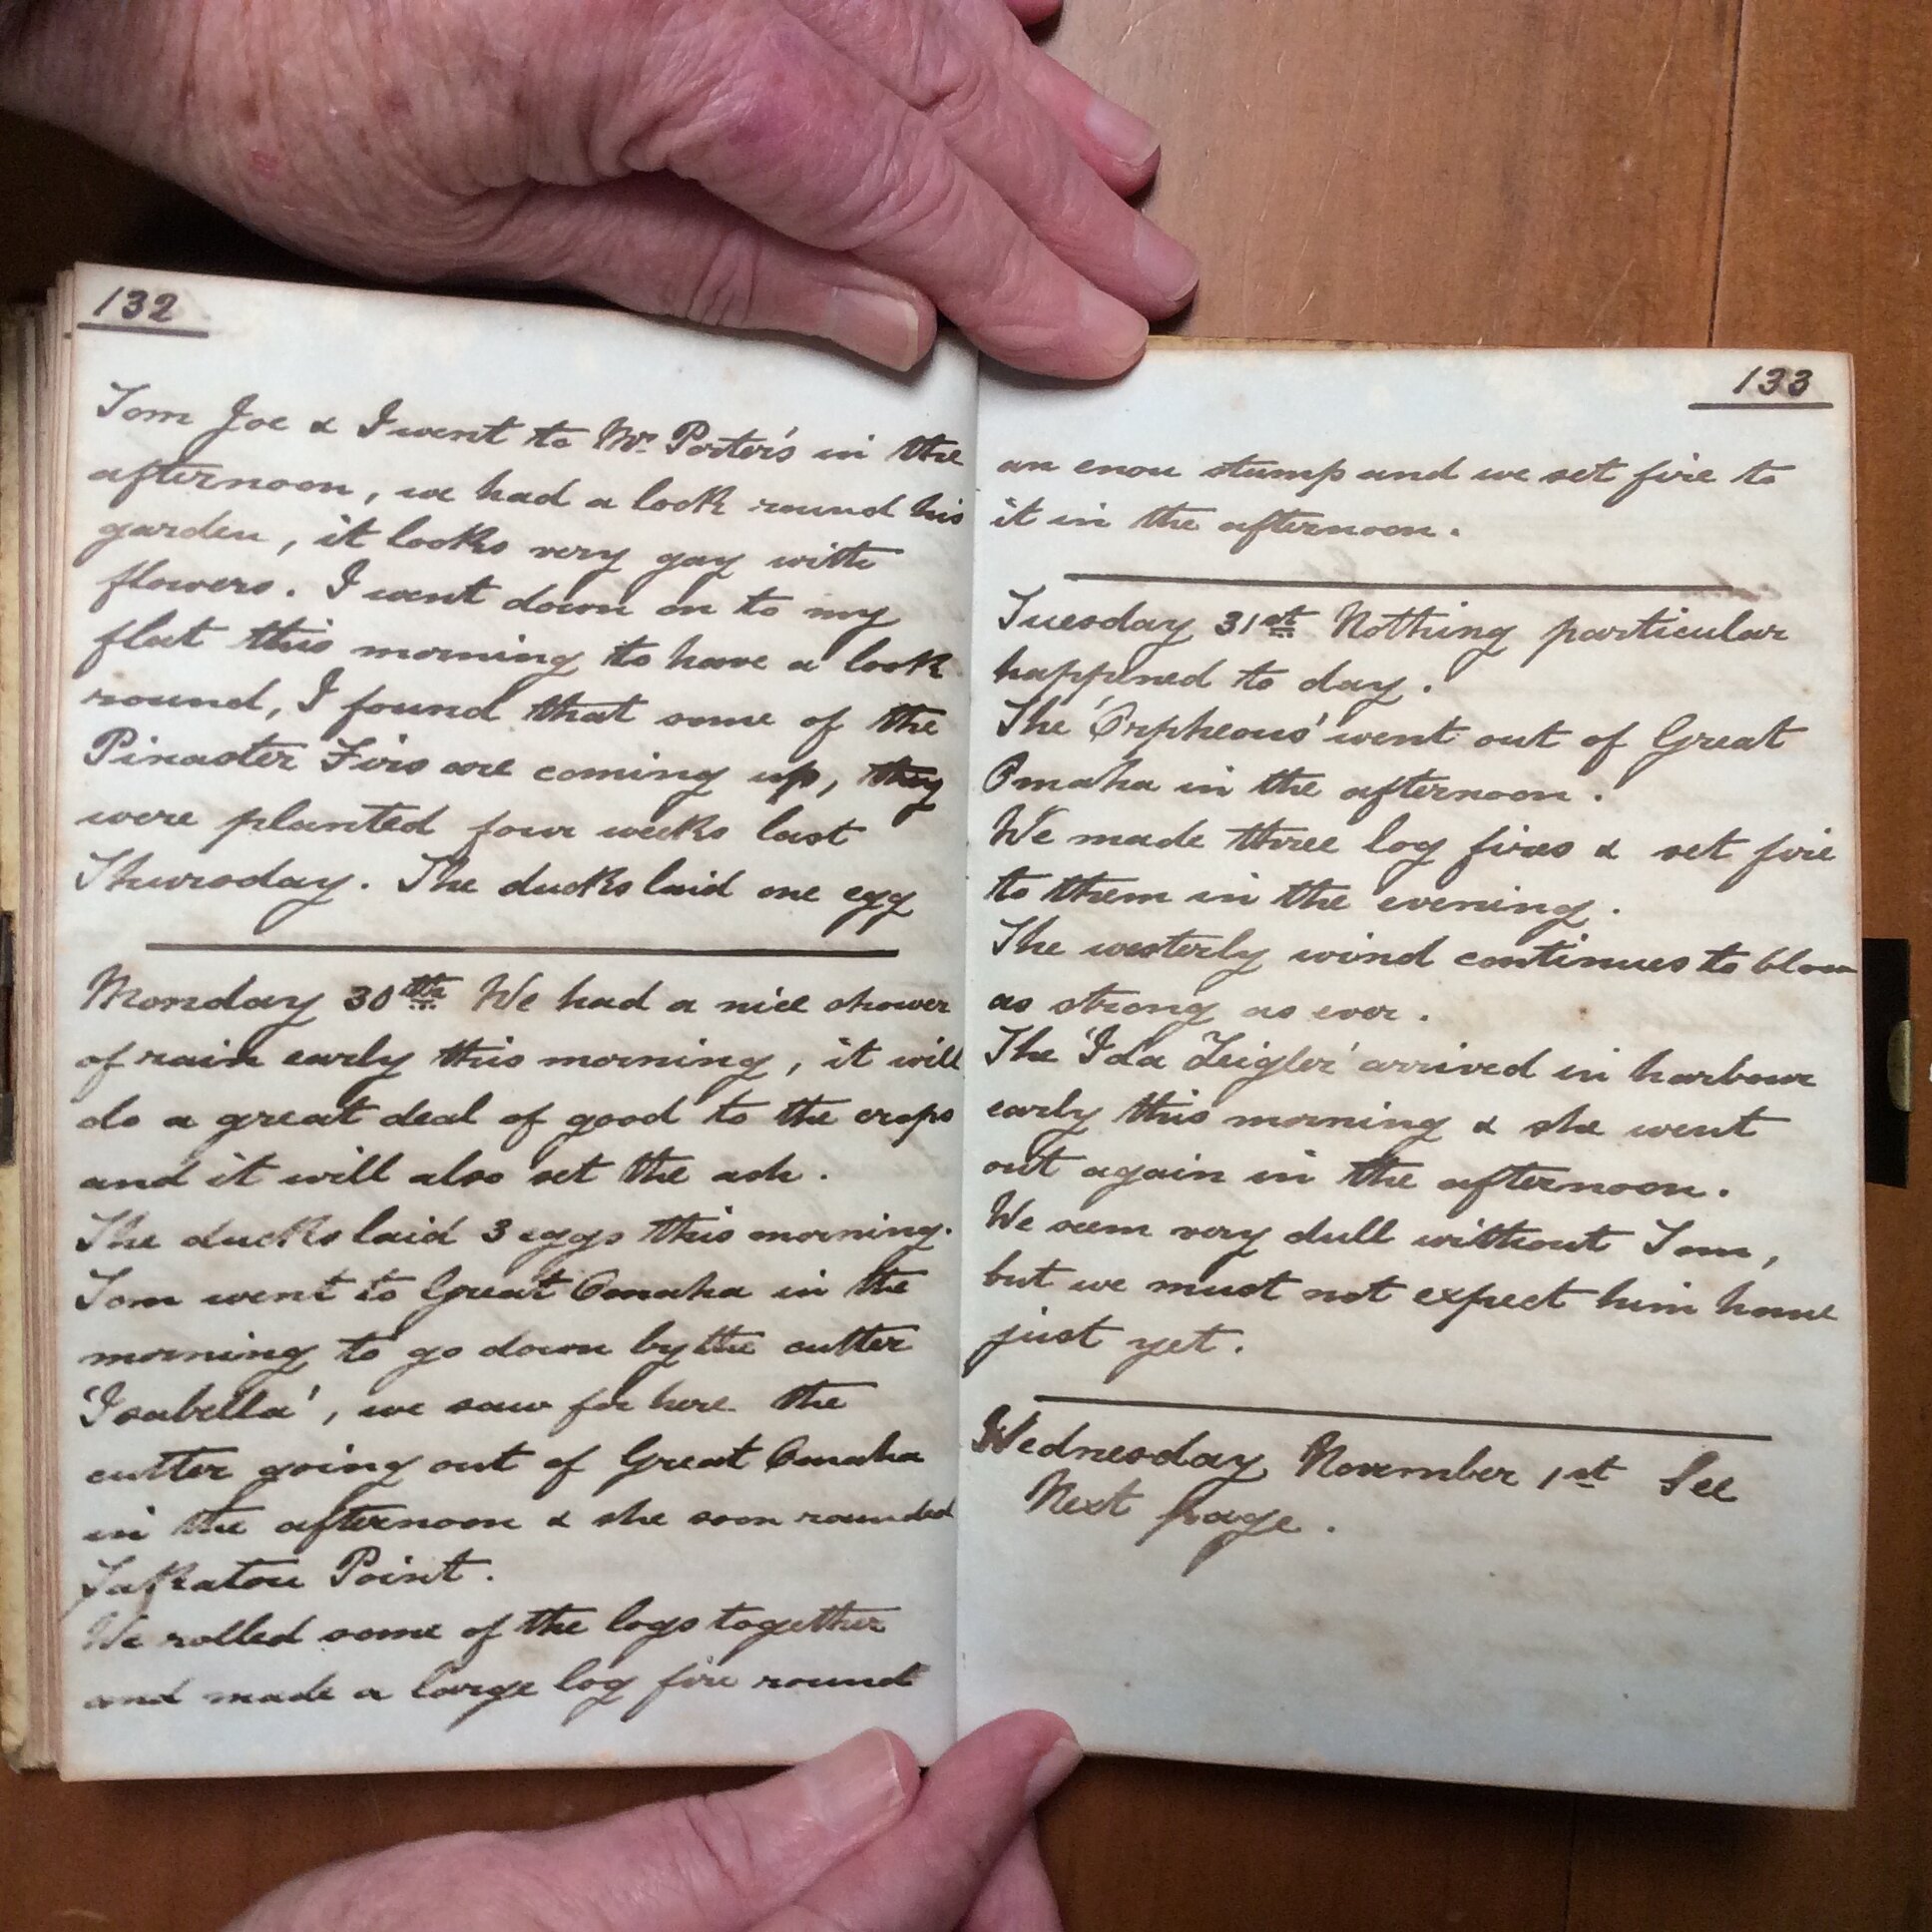 132
Tom Joe & I went to Mr. Porter's in the
afternoon, we had a look round his
garden, it looks very gay with
flowers. I went down on to my
flat this morning to have a look
round, I found that some of the
Pinaster Firs are coming up, they
were planted four weeks last
Thursday. The ducks laid one egg
Monday 30th We had a nice shower
of rain early this morning, it will
do a great deal of good to the crops
and it will also set the ash.
The ducks laid 3 eggs this morning.
Tom went to Great Omaha in the
morning to go down by the cutter
'Isabella', we saw for here the
cutter going out of Great Omaha
in the afternoon & she soon rounded
Point.
We rolled some of the logs together
and made a large log fire round
133
an stump and we set fire to
it in the afternoon.
Tuesday 31st Nothing particular
happened to day.
The 'Orpheous' went out of Great
Omaha in the afternoon.
We made three log fires & set fire
to them in the evening.
The westerly wind continues to blow
as strong as ever.
The 'Ida Zeigler' arrived in harbour
early this morning & she went
out again in the afternoon.
We seem very dull without Tom,
but we must not expect him home
just yet.
Wednesday November 1st See
Next page.